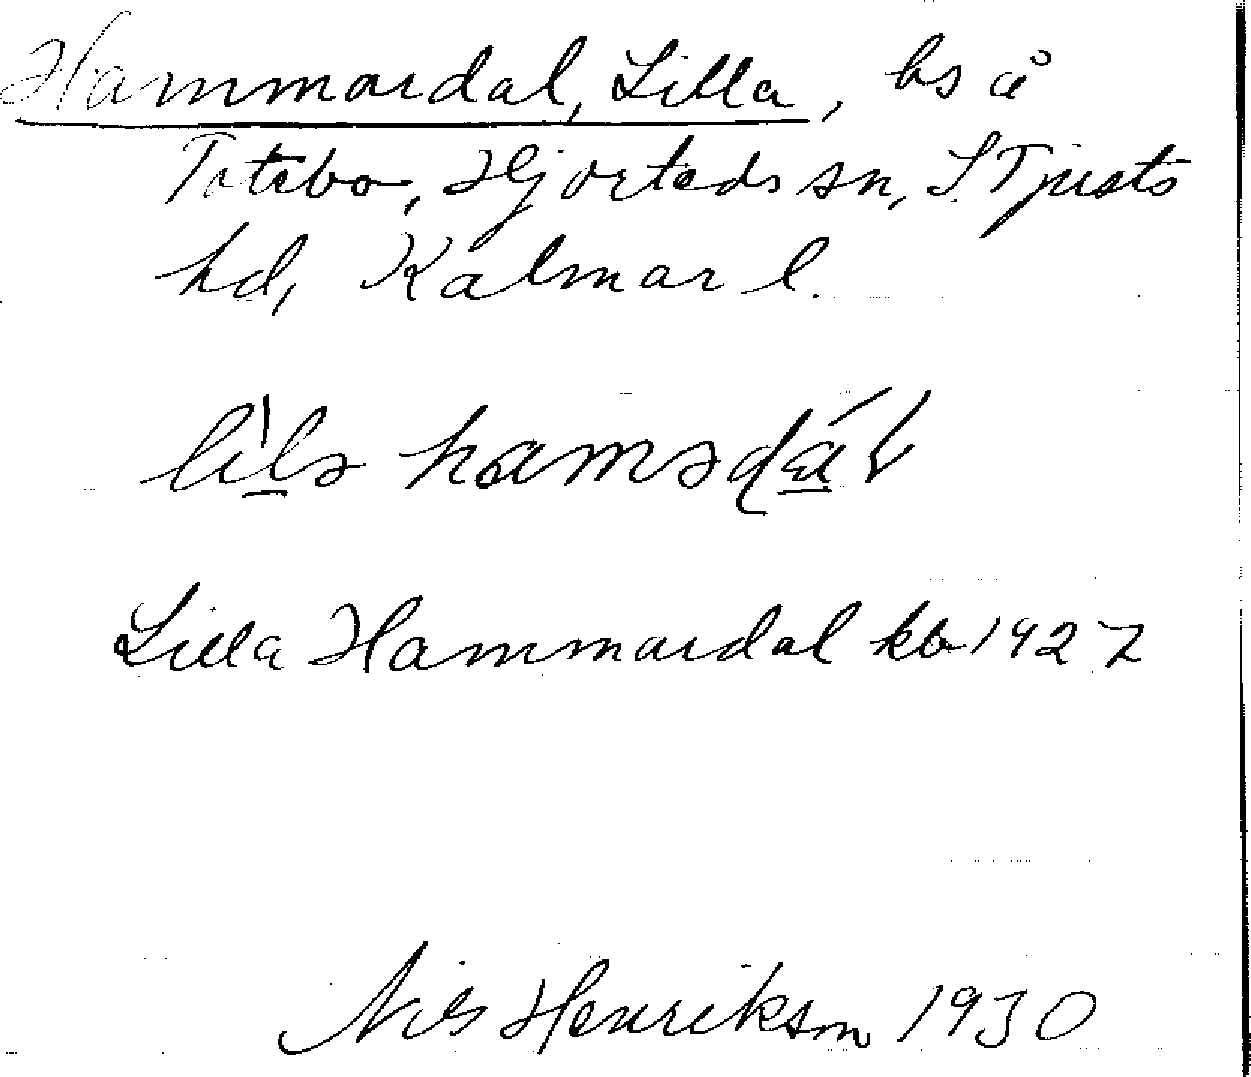 Hammardal, Lilla, bs å
Totebo, Hjorteds sn, S. Tjusts
hd, Kalmar l.
Lilla Hammardal kb 1927
Nils Henrikson 1930